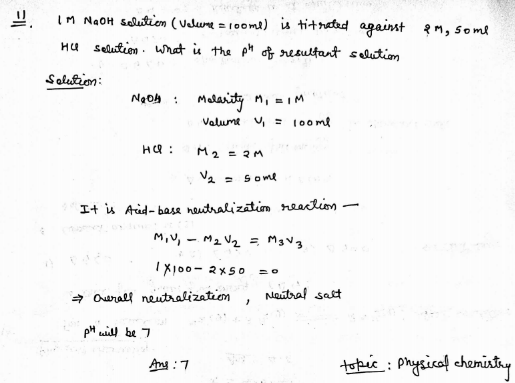 11. 1 M NaOH solution (Volume = 100ml) is titrated against 2M, 50ml
HCl solution. What is the pH of resultant solution
Solution:
NaOH : Molarity M₁ = 1M
Volume V₁ = 100ml
HCl : M₂ = 2M
V₂ = 50ml
It is Acid-base neutralization reaction —
M₁V₁ - M₂V₂ = M₃V₃
1×100 - 2×50 = 0
⇒ Overall neutralization, Neutral salt
pH will be 7
Ans : 7
topic : Physical chemistry